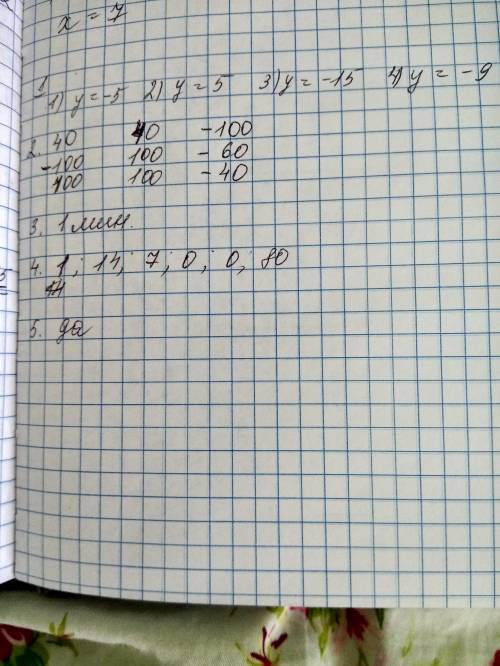 x = 7
1
1) y = -5 2) y = 5 3) y = -15 4) y = -9
2. 40 40 -100
-100 100 -60
100 100 -40
3. 1 мин.
4. 1; 14; 7; 0; 0; 80
14
5. да